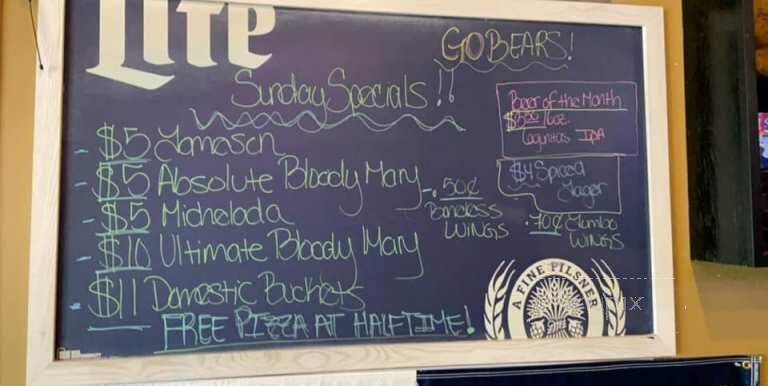 Lite
GO BEARS!
Sunday Specials!!
Beer of the Month
$3.00 16oz
Lagunitas IPA
$4 Spiced
Jager
- $5 Jameson
- $5 Absolute Bloody Mary
- $5 Michelada
- $10 Ultimate Bloody Mary
- $11 Domestic Buckets
. 50¢
Boneless
WINGS
. 70¢ Jumbo
WINGS
FREE PIZZA AT HALFTIME!
A FINE PILSNER